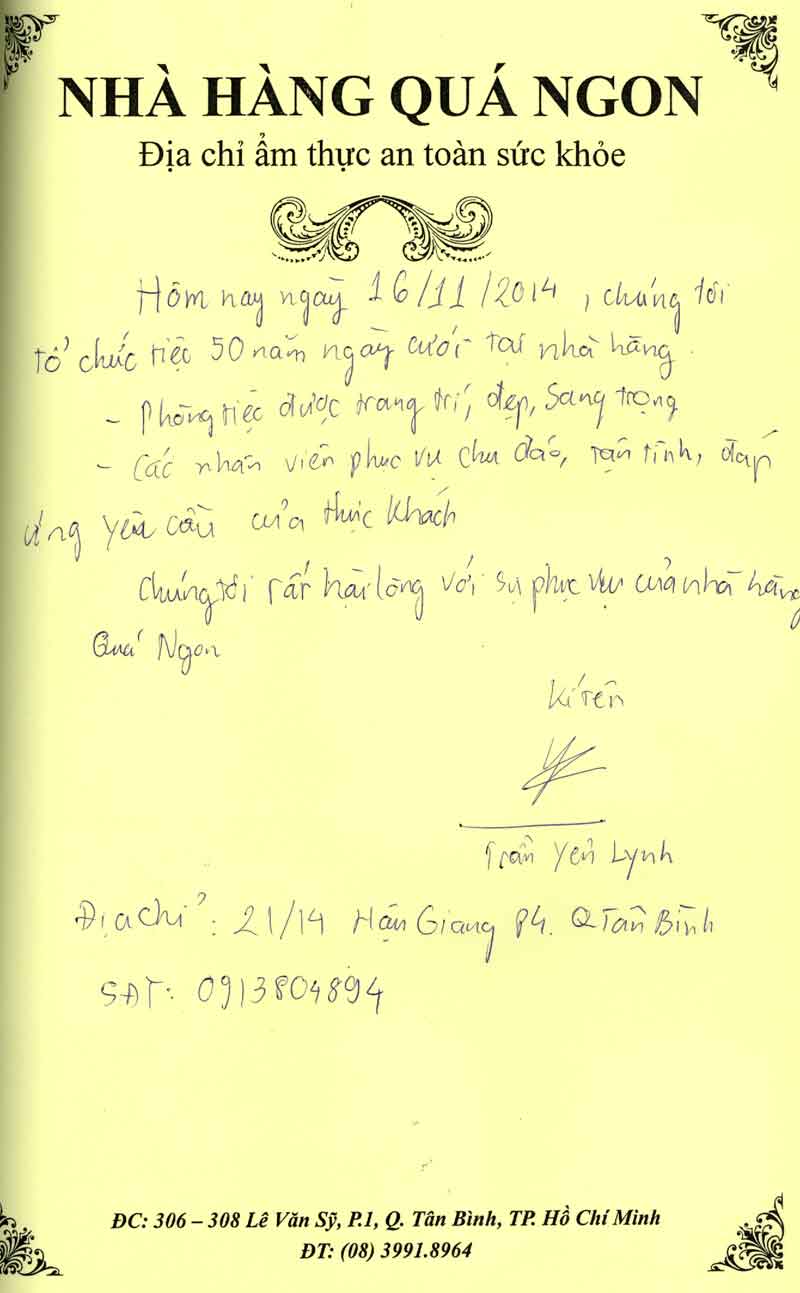 NHÀ HÀNG QUÁ NGON
Địa chỉ ẩm thực an toàn sức khỏe
Hôm nay ngày 16/11/2014, chúng tôi
tổ chức tiệc 50 năm ngày cưới tại nhà hàng.
- Phòng tiệc được trang trí, đẹp, Sang trọng
- Các nhân viên phục vụ chu đáo, tận tình, đáp
ứng yêu cầu của thực khách
Chúng tôi rất hài lòng với sự phục vụ của nhà hàng
Quá Ngon
kí tên
Trần Yến Lynh
Địa chỉ: 21/14 Hậu Giang P4. Q Tân Bình
SĐT: 0913804894
ĐC: 306 – 308 Lê Văn Sỹ, P.1, Q. Tân Bình, TP. Hồ Chí Minh
ĐT: (08) 3991.8964